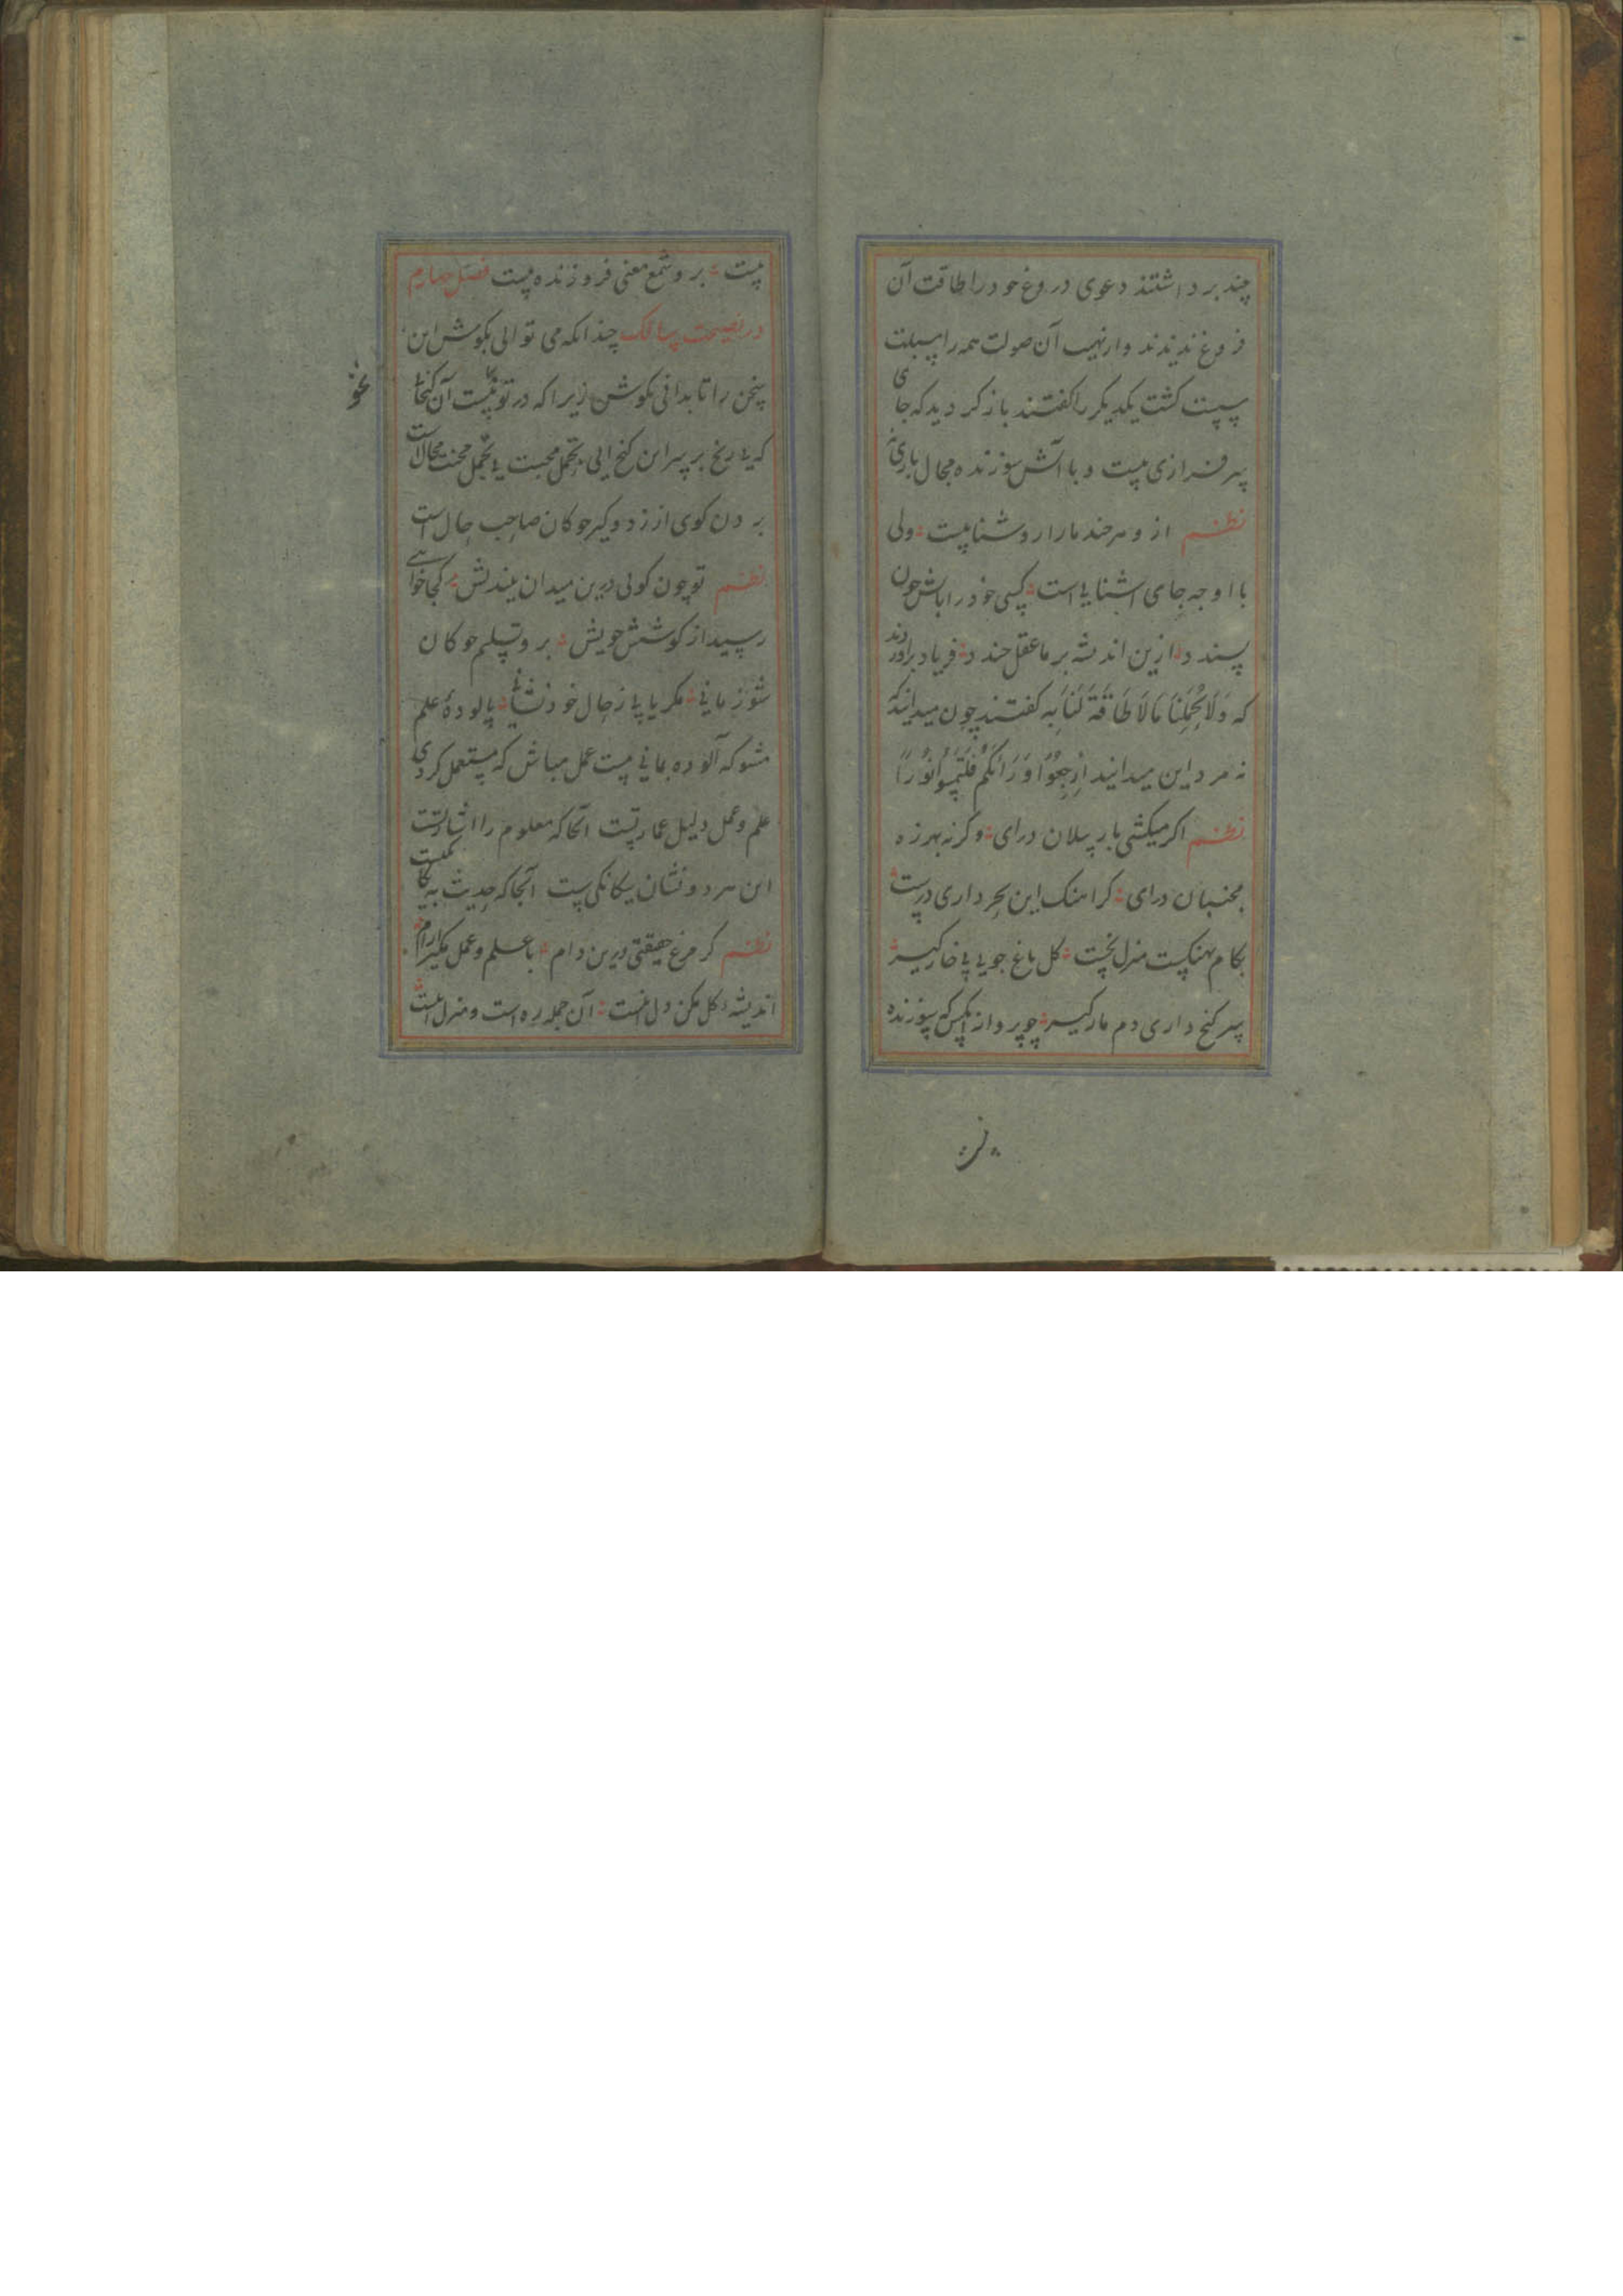 چند برداشتند دعوی دروغ خود را طاقت آن
فروغ ندیدند و از نهیب آن صولت همه را سبلت
سست کشت یکدیکر را کفتند باز کردید که جای
سرفرازی نیست و با آتش سوزنده مجال بازی نه
نظم از و هرچند ما را روشناییست ولی
با او چه جای آشنایی است کسی خود را باش چون
پسندد ازین اندیشه بر ما عقل خندد فریاد برآوردند
که وَلَا تُحَمِّلْنَا مَا لَا طَاقَةَ لَنَا بِهِ کفتند چون میدانید که
نه مرد این میدانید اِرْجِعُوا وَرَاءَكُمْ فَلْتَمِسُوا نُورًا
نظم اکر میکشی بار پیلان درای وکرنه بهرزه
مجنبان درای کر آهنک این بحر داری درست
بکام نهنکست منزل نخست کل باغ جویی پی خار کیر
سر کنج داری دم مار کیر چو پروانه آنکس که سوزنده
نیست برو شمع معنی فروزنده نیست فصل چهارم
در نصیحت سالک چندانکه می توانی بکوش این
سخن را تا بدانی بکوش زیرا که در تو نیست آن کنجا
که بی رنج بر سر این کنج آیی تحمل محبت بی تحمل محنت محالست
بردن کوی از زد و کیر چوکان صاحب حال است
نظم تو چون کویی درین میدان بیندیش کجا خواهی
رسید از کوشش خویش برو تسلیم چوکان
شو زمانی مکر یابی ز حال خود نشانی پالودهٔ علم
مشو که آلوده بمانی مست عمل مباش که مستعمل کردی
علم و عمل دلیل عمارتست آنجا که معلوم را اشارتست
این هر دو نشان یکانکی است آنجا که حدیث بی
نظم کر مرغ حقیقتی درین دام با علم و عمل مکیر آرام
اندیشهٔ کل مکن دل اینست آن جمله ره است و منزل اینست